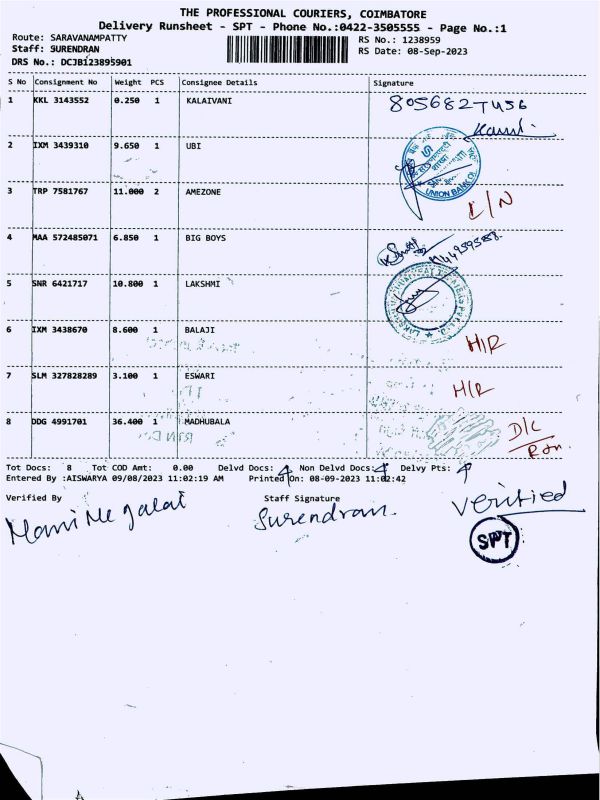 THE PROFESSIONAL COURIERS, COIMBATORE
Delivery Runsheet - SPT - Phone No.:0422-3505555 - Page No.:1
Route: SARAVANAMPATTY
RS No.: 1238959
Staff: SURENDRAN
RS Date: 08-Sep-2023
DRS No.: DCJB123895901
S No Consignment No Weight PCS Consignee Details Signature
1 KKL 3143552 0.250 1 KALAIVANI
8056827456
2 IXM 3439310 9.650 1 UBI
UNION BANK OF
3 TRP 7581767 11.000 2 AMEZONE
L/N
4 MAA 572485071 6.850 1 BIG BOYS
5 SNR 6421717 10.800 1 LAKSHMI
6 IXM 3438670 8.600 1 BALAJI
H/R
7 SLM 327828289 3.100 1 ESWARI
H/R
8 DDG 4991701 36.400 1 MADHUBALA
D/L
Rtn
Tot Docs: 8 Tot COD Amt: 0.00 Delvd Docs: 4 Non Delvd Docs: 4 Delvy Pts: 4
Entered By :AISWARYA 09/08/2023 11:02:19 AM Printed On: 08-09-2023 11:02:42
Verified By Staff Signature Verified
Surendran.
SPT